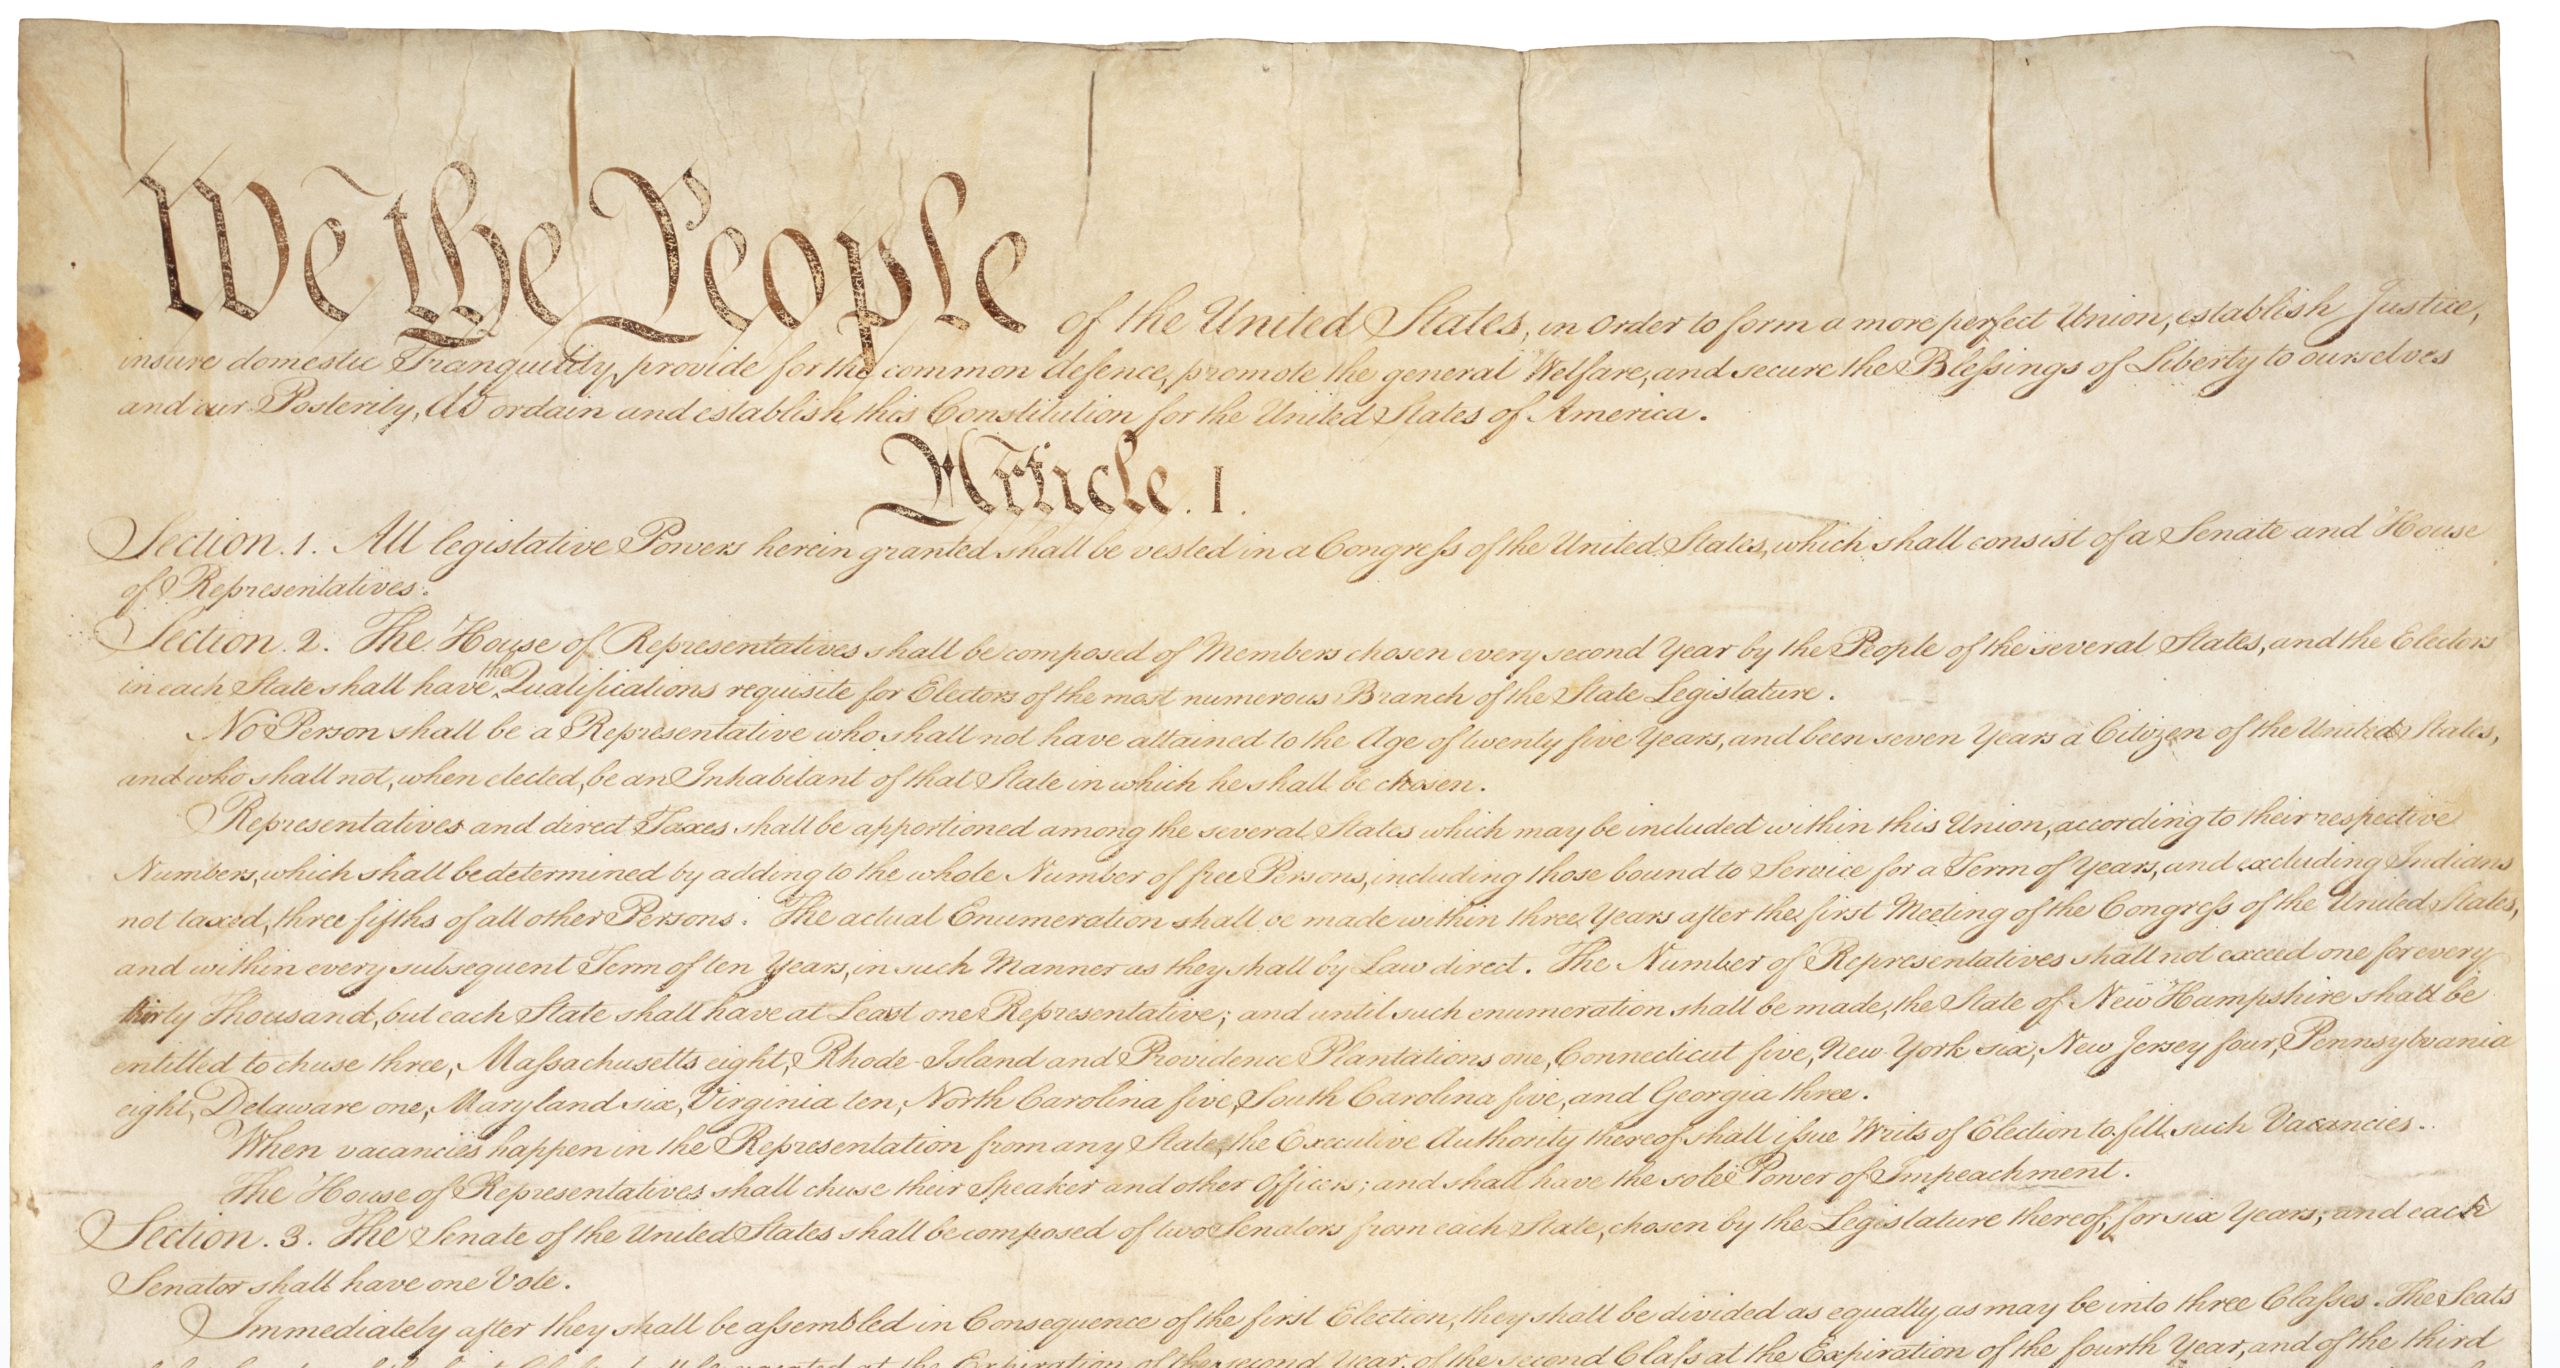 We the People of the United States, in Order to form a more perfect Union, establish Justice,
insure domestic Tranquility, provide for the common defence, promote the general Welfare, and secure the Blessings of Liberty to ourselves
and our Posterity, do ordain and establish this Constitution for the United States of America.
Article. I.
Section. 1. All legislative Powers herein granted shall be vested in a Congress of the United States, which shall consist of a Senate and House
of Representatives.
Section. 2. The House of Representatives shall be composed of Members chosen every second Year by the People of the several States, and the Electors
in each State shall have the Qualifications requisite for Electors of the most numerous Branch of the State Legislature.
No Person shall be a Representative who shall not have attained to the Age of twenty five Years, and been seven Years a Citizen of the United States,
and who shall not, when elected, be an Inhabitant of that State in which he shall be chosen.
Representatives and direct Taxes shall be apportioned among the several States which may be included within this Union, according to their respective
Numbers, which shall be determined by adding to the whole Number of free Persons, including those bound to Service for a Term of Years, and excluding Indians
not taxed, three fifths of all other Persons. The actual Enumeration shall be made within three Years after the first Meeting of the Congress of the United States,
and within every subsequent Term of ten Years, in such Manner as they shall by Law direct. The Number of Representatives shall not exceed one for every
thirty Thousand, but each State shall have at Least one Representative; and until such enumeration shall be made, the State of New Hampshire shall be
entitled to chuse three, Massachusetts eight, Rhode-Island and Providence Plantations one, Connecticut five, New-York six, New Jersey four, Pennsylvania
eight, Delaware one, Maryland six, Virginia ten, North Carolina five, South Carolina five, and Georgia three.
When vacancies happen in the Representation from any State, the Executive Authority thereof shall issue Writs of Election to fill such Vacancies.
The House of Representatives shall chuse their Speaker and other Officers; and shall have the sole Power of Impeachment.
Section. 3. The Senate of the United States shall be composed of two Senators from each State, chosen by the Legislature thereof, for six Years; and each
Senator shall have one Vote.
Immediately after they shall be assembled in Consequence of the first Election, they shall be divided as equally as may be into three Classes. The Seats
at the Expiration of the second Year, of the second Class at the Expiration of the fourth Year, and of the third